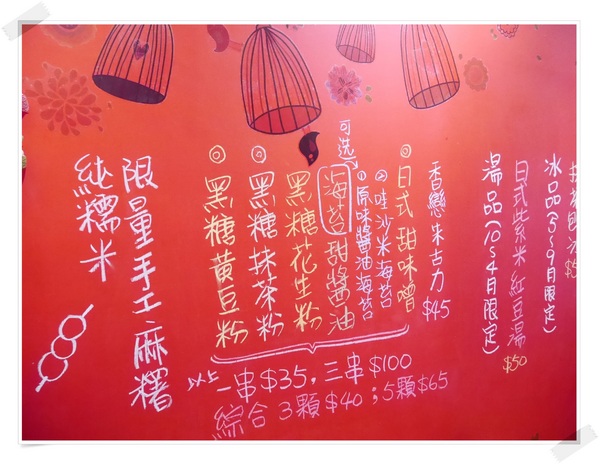 純糯米
限量手工麻糬
◎黑糖黃豆粉
◎黑糖抹茶粉
黑糖花生粉
海苔甜醬油
可选
①原味醬油海苔
②哇沙米海苔
◎日式甜味噌
香戀朱古力 $45
以上一串$35,三串$100
綜合3顆$40;5顆$65
湯品(10~4月限定)
日式紫米紅豆湯 $50
冰品(5~9月限定)